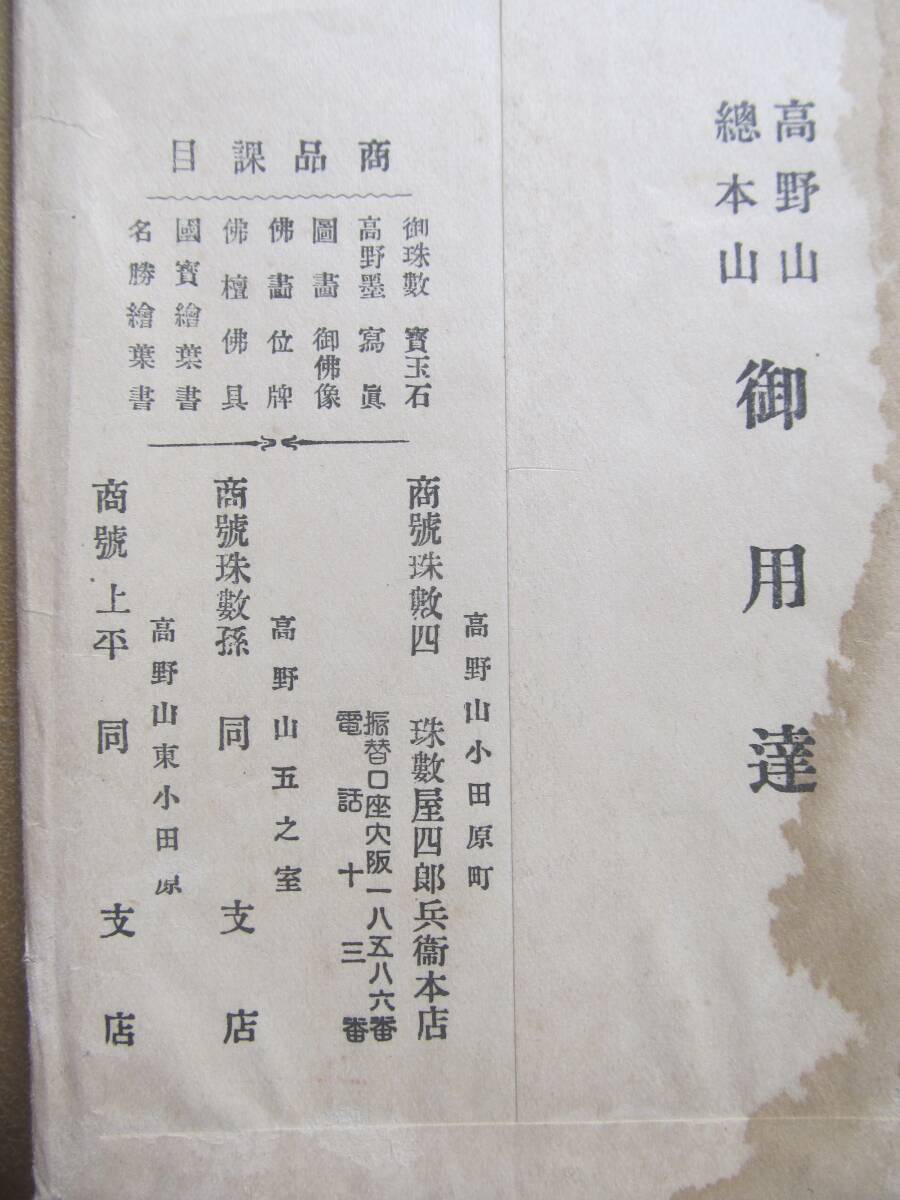 高野山
總本山
御用達
商品課目
御珠數 寳玉石
高野墨 寫眞
圖畵 御佛像
佛畵位牌
佛檀佛具
國寳繪葉書
名勝繪葉書
高野山小田原町
商號珠數四 珠數屋四郎兵衞本店
振替口座大阪一八五八六番
電話十三番
高野山五之室
商號珠數孫 同支店
高野山東小田原
商號上平 同支店